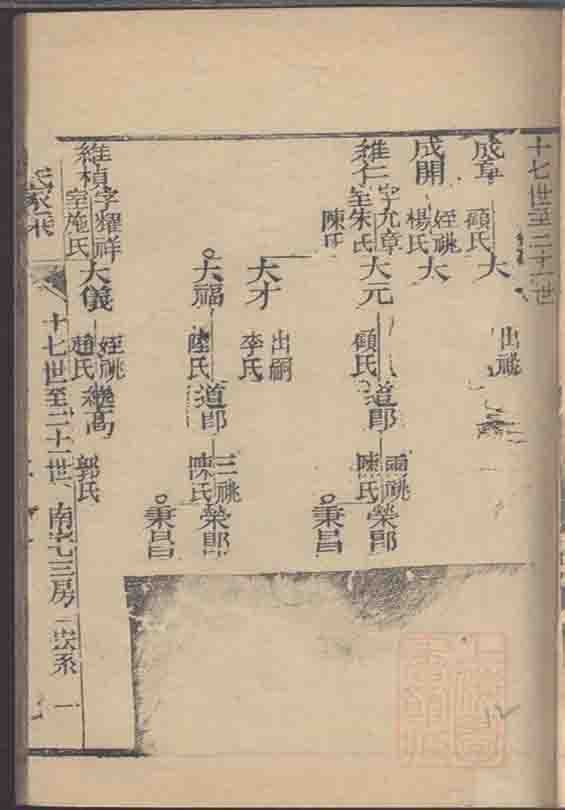 十七世至二十一世
成章 顧氏 大 出祧
成開 姪祧 楊氏 大
維仁 字允章 室朱氏 陳氏 大元 顧氏 道郎 兩祧 陳氏 榮郎
秉昌
大才 出嗣 李氏
大福 陸氏 道郎 三祧 陳氏 榮郎
秉昌
維楨 字耀祥 室施氏 大儀 姪祧 趙氏 高 郭氏
十七世至二十一世 南宅三房 世系 一
12